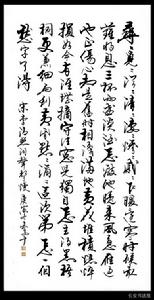 尋々覓々冷々清々悽々慘々戚々乍暖還寒時候最
難將息三杯兩盞淡酒怎敵他晚來風急雁過
也正傷心卻是舊時相識滿地黃花堆積憔悴
損如今有誰堪摘守著窗兒獨自怎生得黑梧
桐更兼細雨到黃昏點々滴々這次第怎一個
愁字了得
宋李清照詞聲聲慢